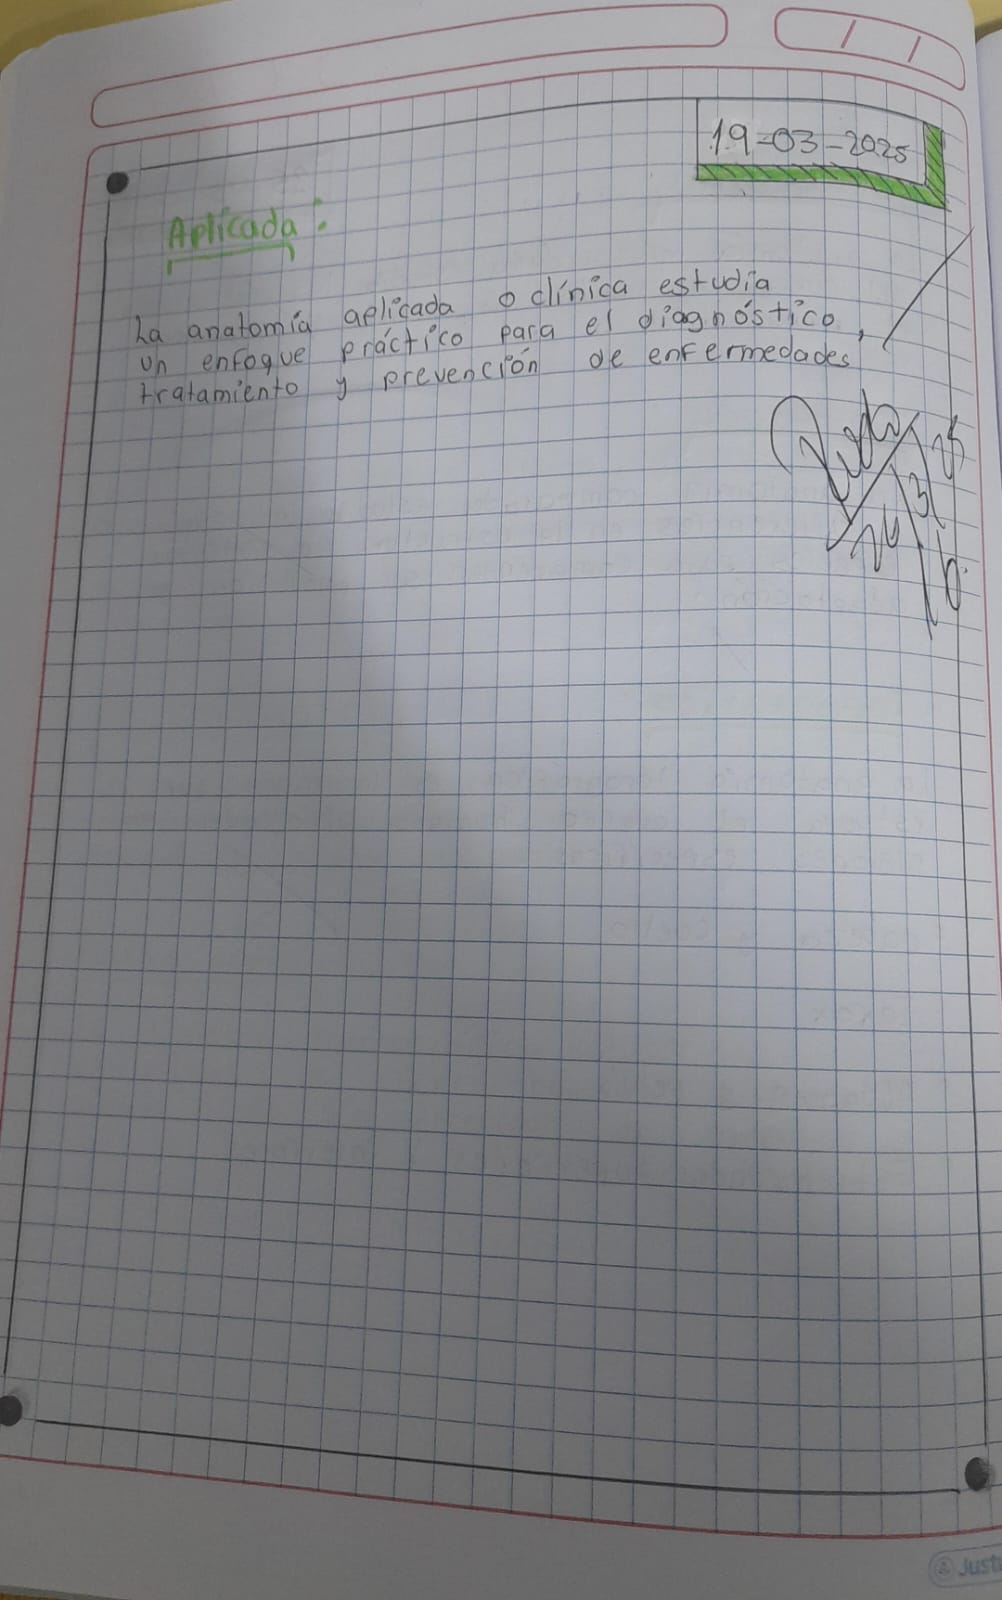 19-03-2025
Aplicada:
La anatomía aplicada o clínica estudia
un enfoque práctico para el diagnóstico,
tratamiento y prevención de enfermedades
Just